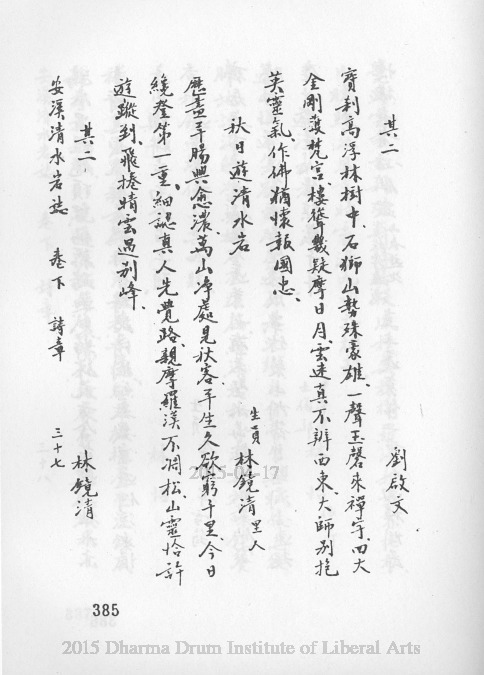 其二
劉啟文
寶刹高浮林樹中、石獅山勢殊豪雄、一聲玉磬來禪宇、四大
金剛護梵宮、樓聳幾疑摩日月、雲迷真不辨西東、大師別抱
英靈氣、作佛猶懷報國忠、
秋日遊清水岩
生員 林鏡清 里人
歷盡羊腸興愈濃、萬山净處見秋容、平生久欲窮千里、今日
纔登第一重、細認真人先覺路、親摩羅漢不凋松、山靈恰許
遊蹤到、飛捲晴雲過別峰、
其二
林鏡清
安溪清水岩誌 卷下 詩章 三十七
385
2015 Dharma Drum Institute of Liberal Arts